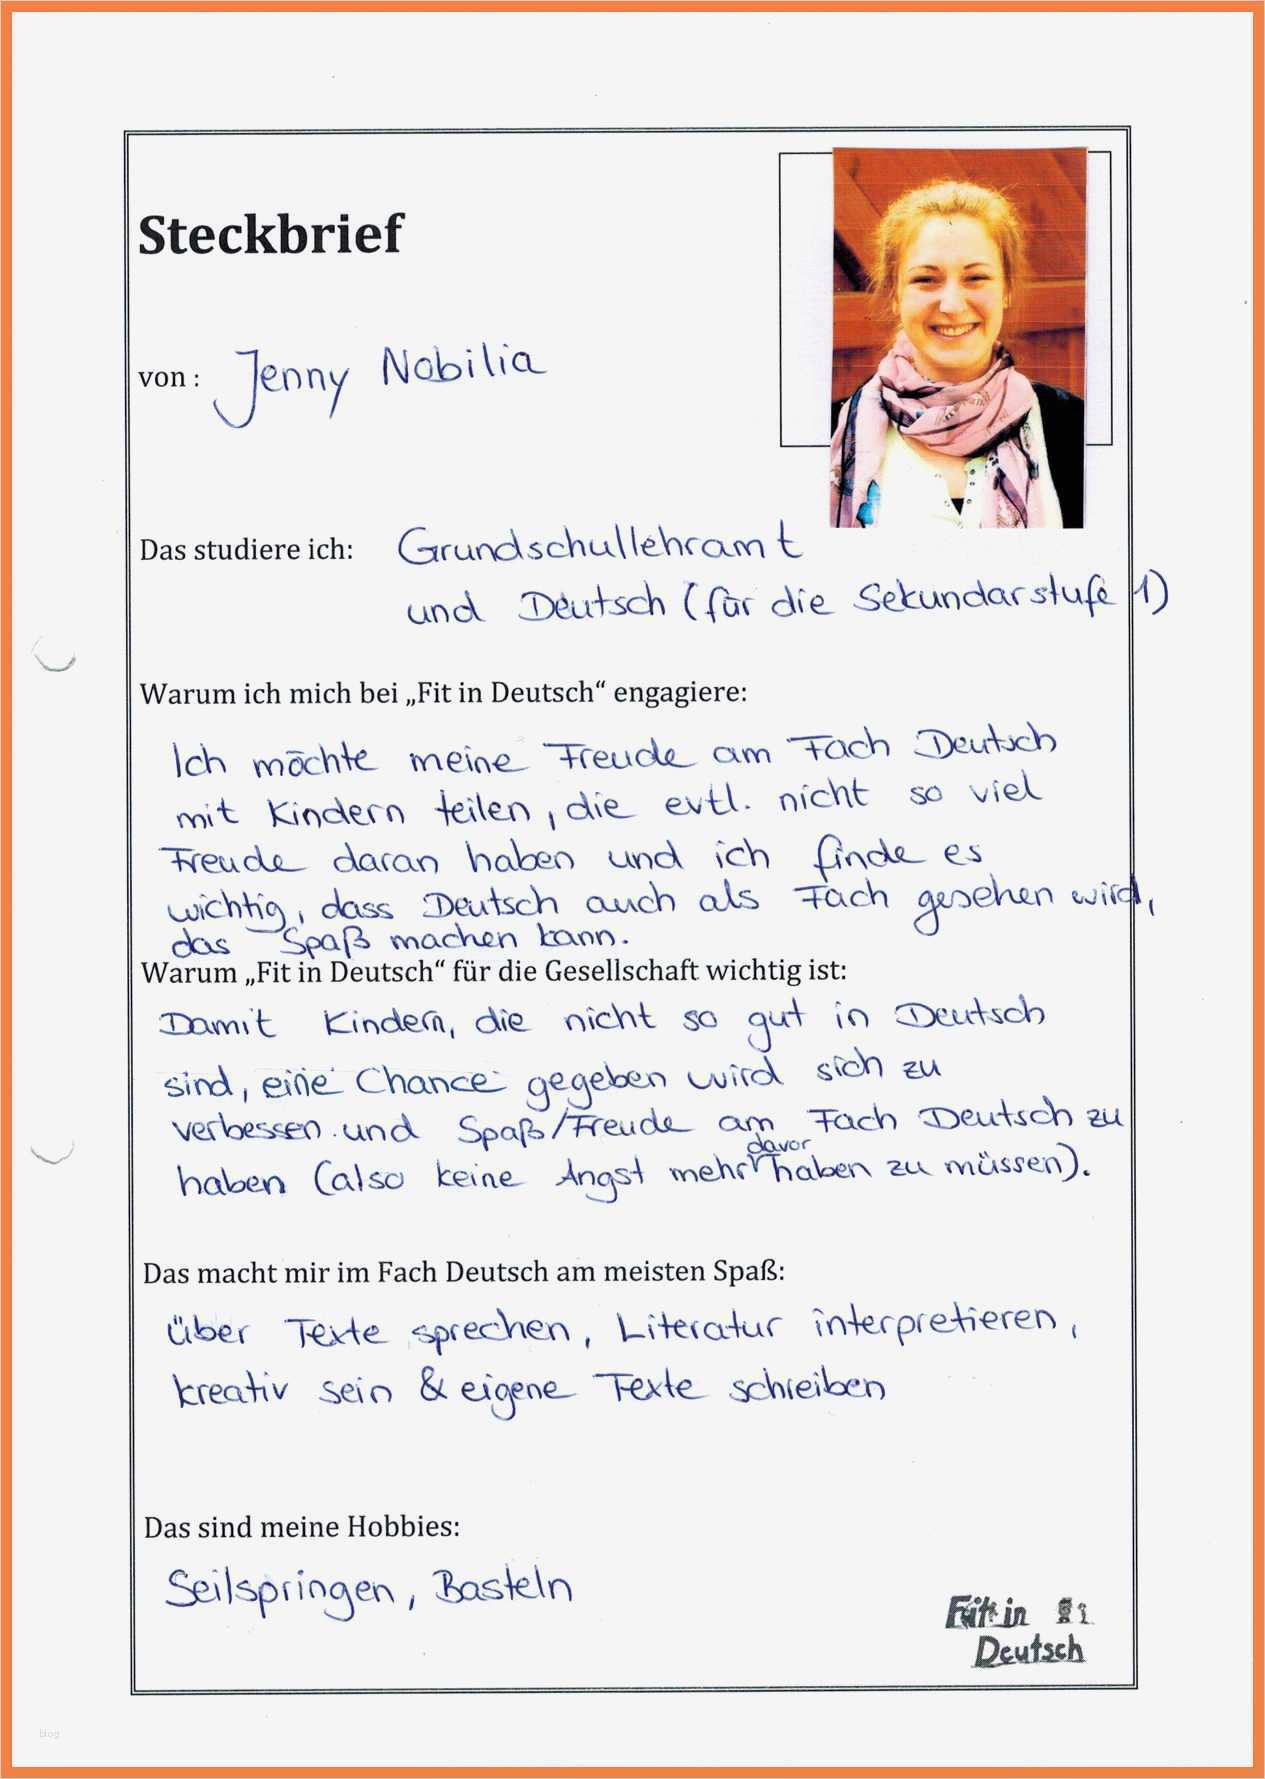 Steckbrief
von : Jenny Nobilia
Das studiere ich: Grundschullehramt
und Deutsch (für die Sekundarstufe 1)
Warum ich mich bei „Fit in Deutsch“ engagiere:
Ich möchte meine Freude am Fach Deutsch
mit Kindern teilen, die evtl. nicht so viel
Freude daran haben und ich finde es
wichtig, dass Deutsch auch als Fach gesehen wird,
das Spaß machen kann.
Warum „Fit in Deutsch“ für die Gesellschaft wichtig ist:
Damit Kindern, die nicht so gut in Deutsch
sind, eine Chance gegeben wird sich zu
verbessen und Spaß/Freude am Fach Deutsch zu
haben (also keine Angst mehr davor haben zu müssen).
Das macht mir im Fach Deutsch am meisten Spaß:
über Texte sprechen, Literatur interpretieren,
kreativ sein & eigene Texte schreiben
Das sind meine Hobbies:
Seilspringen, Basteln
Fit in
Deutsch
blog